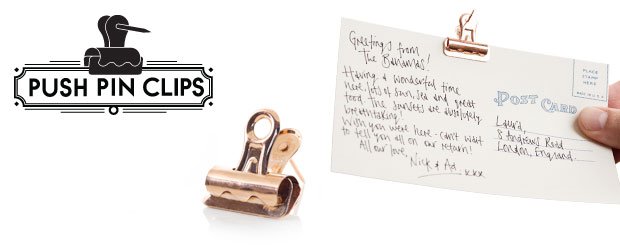 PUSH PIN CLIPS
Greetings from
The Bahamas!
Having a wonderful time
here, lots of sun, sea and great
food. The sunsets are absolutely
breathtaking!
Wish you were here - can't wait
to tell you all on our return!
All our love,
Nick & Ad. xxx
PLACE
STAMP
HERE
MADE IN U.S.A.
POST CARD
Laura,
8 Andrews Road
London, England.